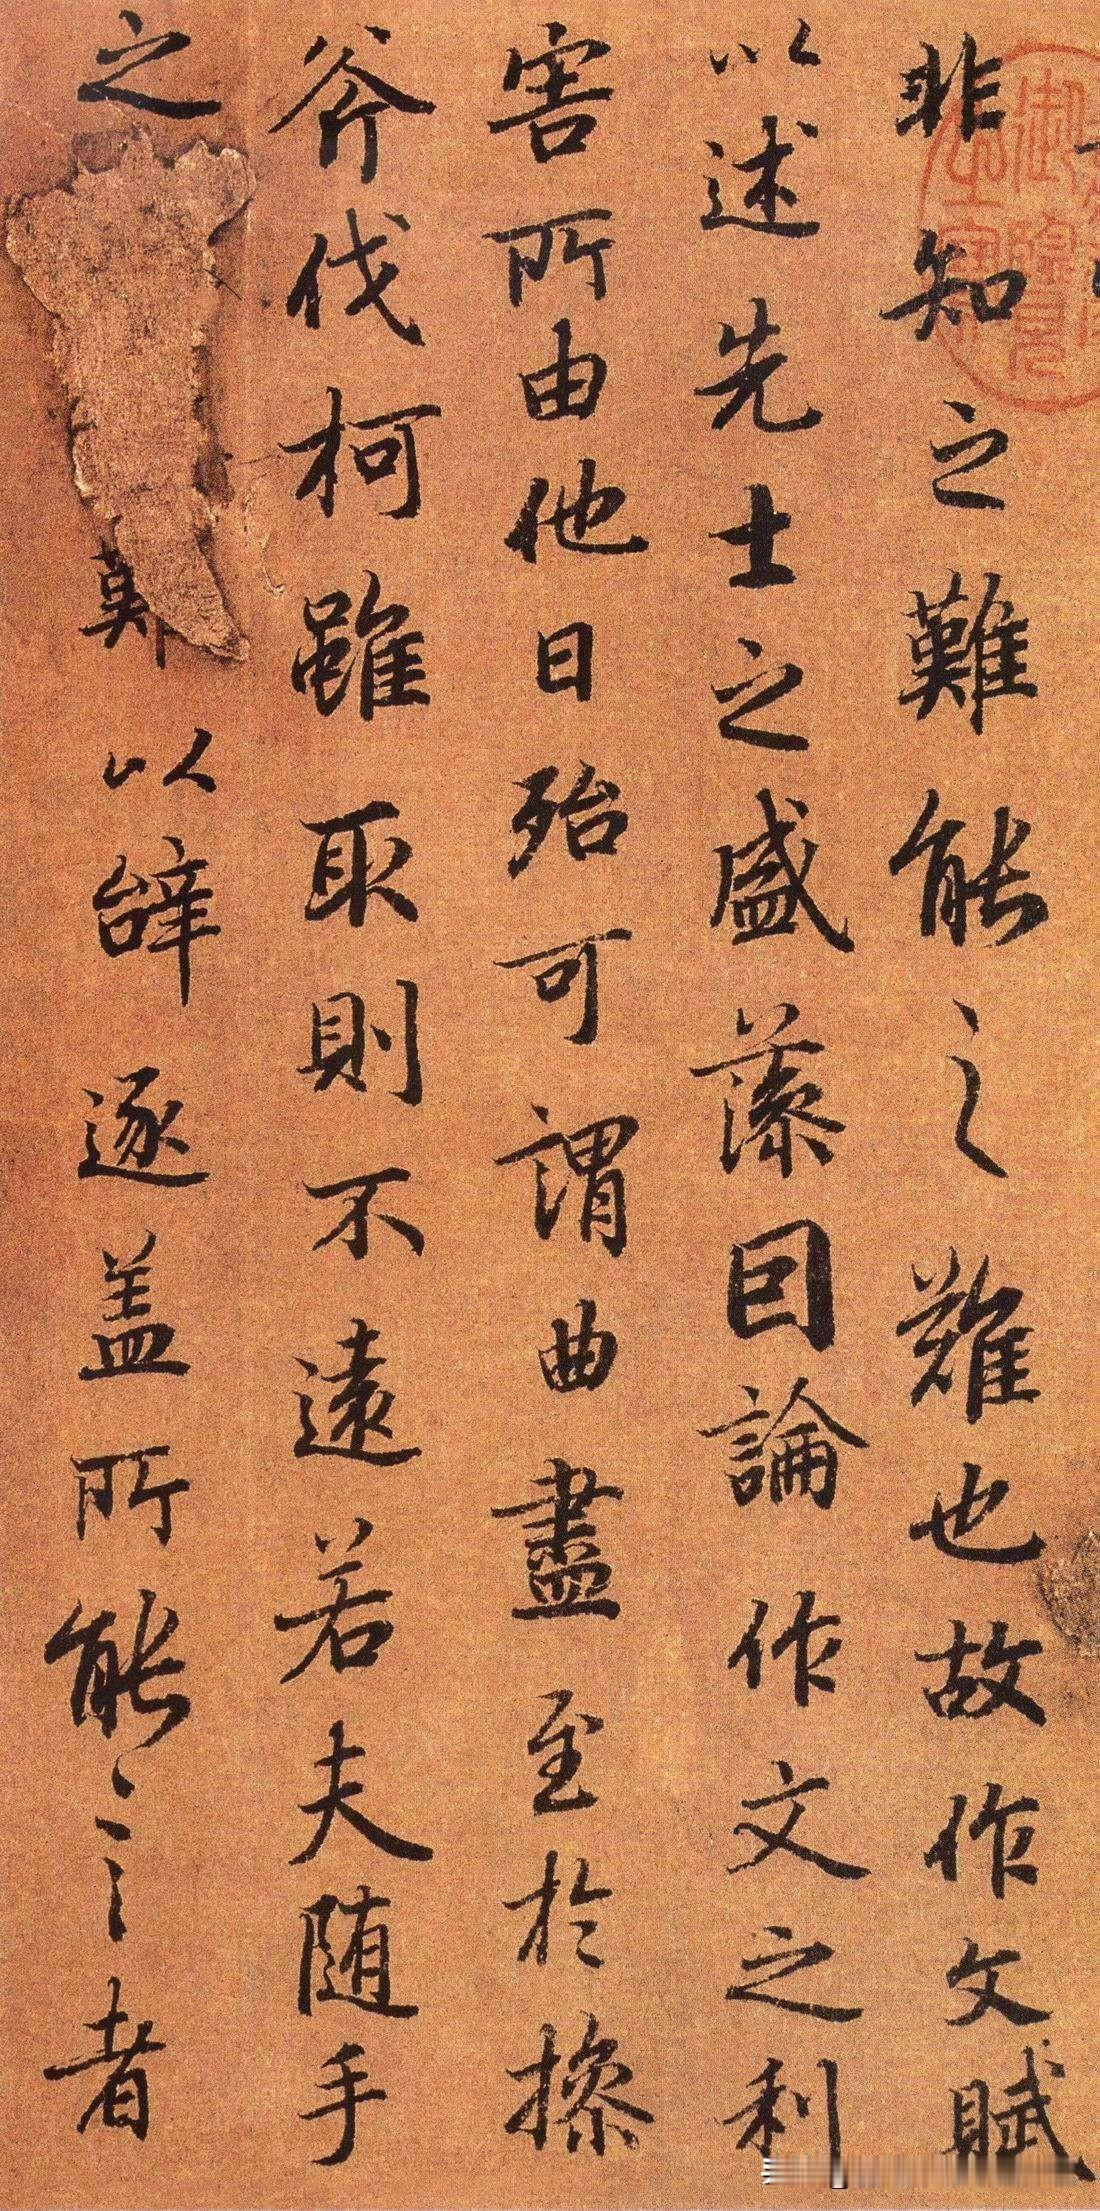 非知之難能之難也故作文賦
以述先士之盛藻囙論作文之利
害所由他日殆可謂曲盡至於操
斧伐柯雖取則不遠若夫随手
之難以辝逐盖所能言者